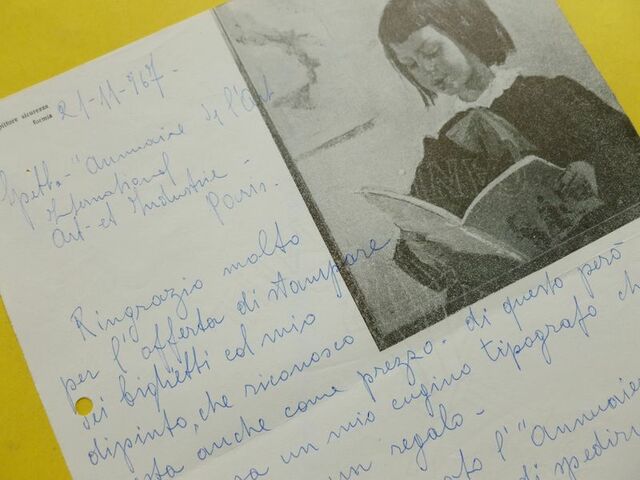 pittore sicurezza
formia
21-11-967-
Spett. "Annuaire de l'Art
International
Art et Industrie-
Paris-
Ringrazio molto
per l'offerta di stampare
dei biglietti col mio
dipinto, che riconosco
anche come prezzo. di questo però
un mio cugino tipografo
un regalo-
l'"Annuaire
di spedir